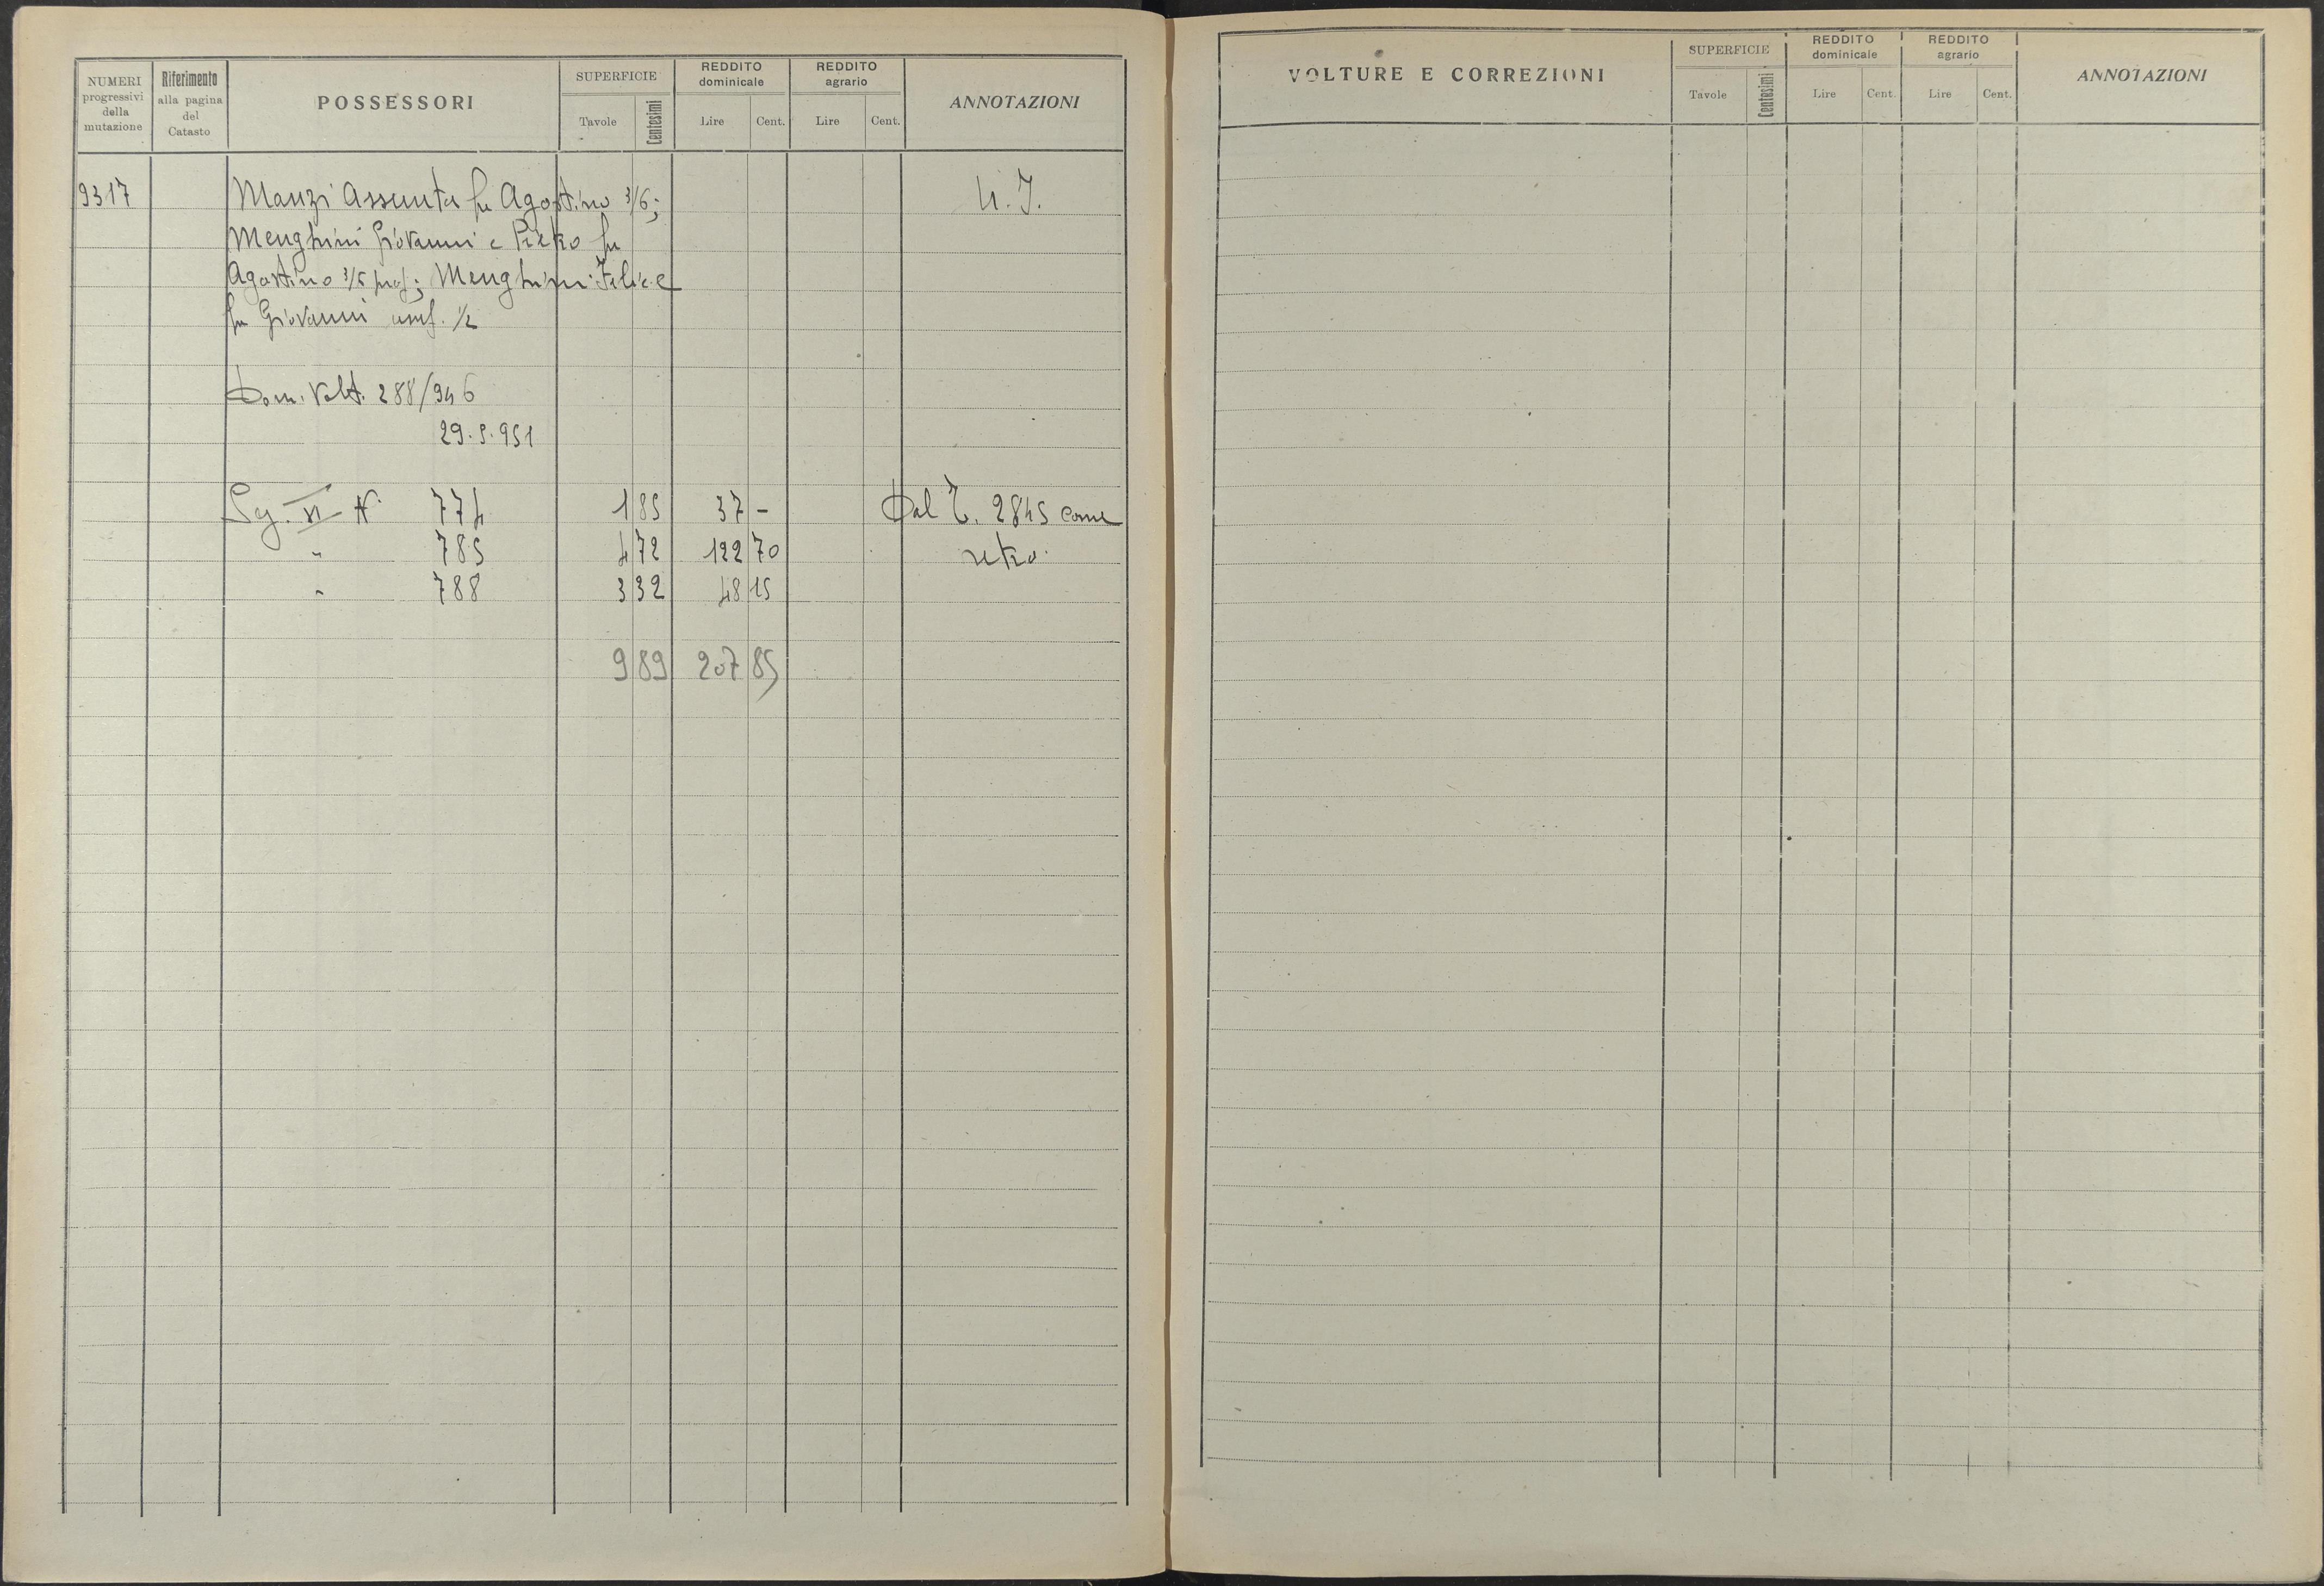 NUMERI progressivi della mutazione
Riferimento alla pagina del Catasto
POSSESSORI
SUPERFICIE
Tavole Centesimi
REDDITO dominicale
Lire Cent.
REDDITO agrario
Lire Cent.
ANNOTAZIONI
9317 Manzi Assunta fu Agostino 3/6;
Menghini Giovanni e Pietro fu
Agostino 3/6 prop; Menghini Felice
fu Giovanni usuf. 1/2
Dom. Volt. 288/946
29.5.951
Sez. VI N. 774 1 85 37 - Dal T. 2845 come
" 785 4 72 122 70 retro
" 788 3 32 48 15
9 89 207 85
VOLTURE E CORREZIONI
SUPERFICIE
Tavole Centesimi
REDDITO dominicale
Lire Cent.
REDDITO agrario
Lire Cent.
ANNOTAZIONI